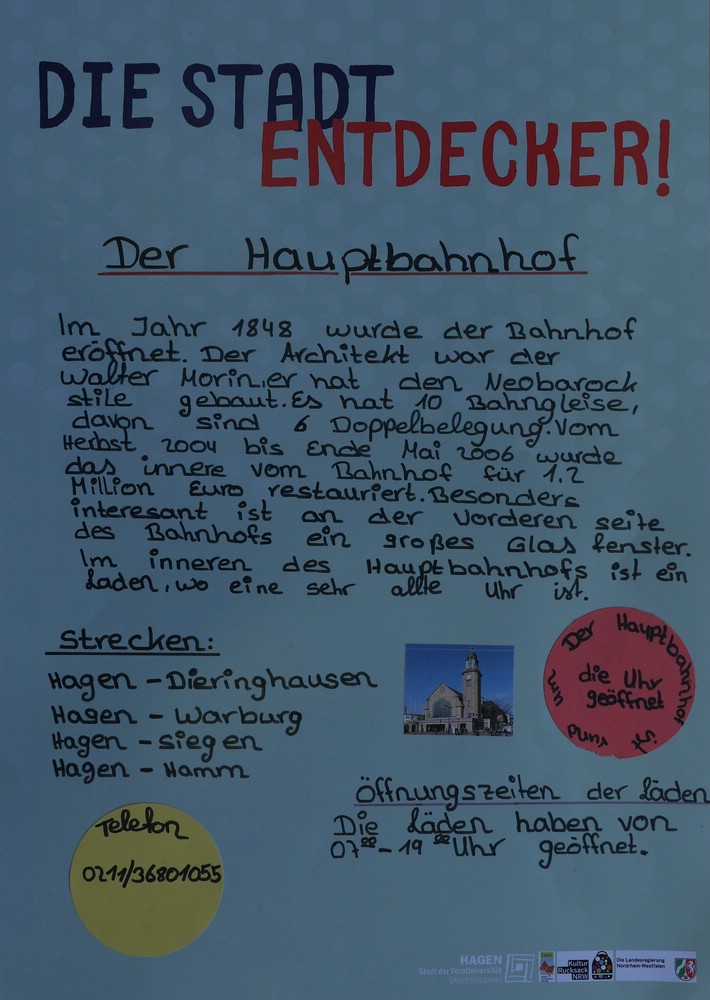 DIE STADT
ENTDECKER!
Der Hauptbahnhof
Im Jahr 1848 wurde der Bahnhof
eröffnet. Der Architekt war der
Walter Morin,er hat den Neobarock
stile gebaut.Es hat 10 Bahngleise,
davon sind 6 Doppelbelegung.Vom
Herbst 2004 bis Ende Mai 2006 wurde
das innere vom Bahnhof für 1.2
Million Euro restauriert.Besonders
interesant ist an der Vorderen seite
des Bahnhofs ein großes Glas fenster.
Im inneren des Hauptbahnhofs ist ein
Laden, wo eine sehr allte Uhr ist.
Strecken:
Hagen - Dieringhausen
Hagen - Warburg
Hagen - Siegen
Hagen - Hamm
Der Hauptbahnhof
ist rund um
die Uhr
geöffnet
Öffnungszeiten der Läden
Die Läden haben von
07 00 - 19 00 Uhr geöffnet.
Telefon
0211/36801055
HAGEN
Stadt der FernUniversität
Stadtbücherei
Kultur
Rucksack
NRW
Die Landesregierung
Nordrhein-Westfalen